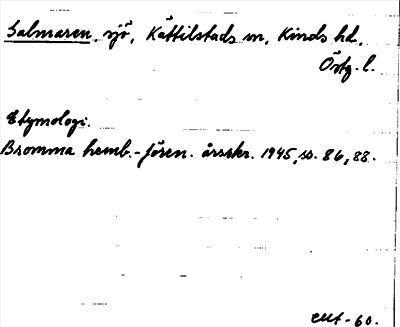 Salmaren, sjö, Kättilstads sn, Kinds hd,
Östg. l.
Etymologi.
Bromma hemb.-fören. årsskr. 1945, s. 86, 88.
-60.